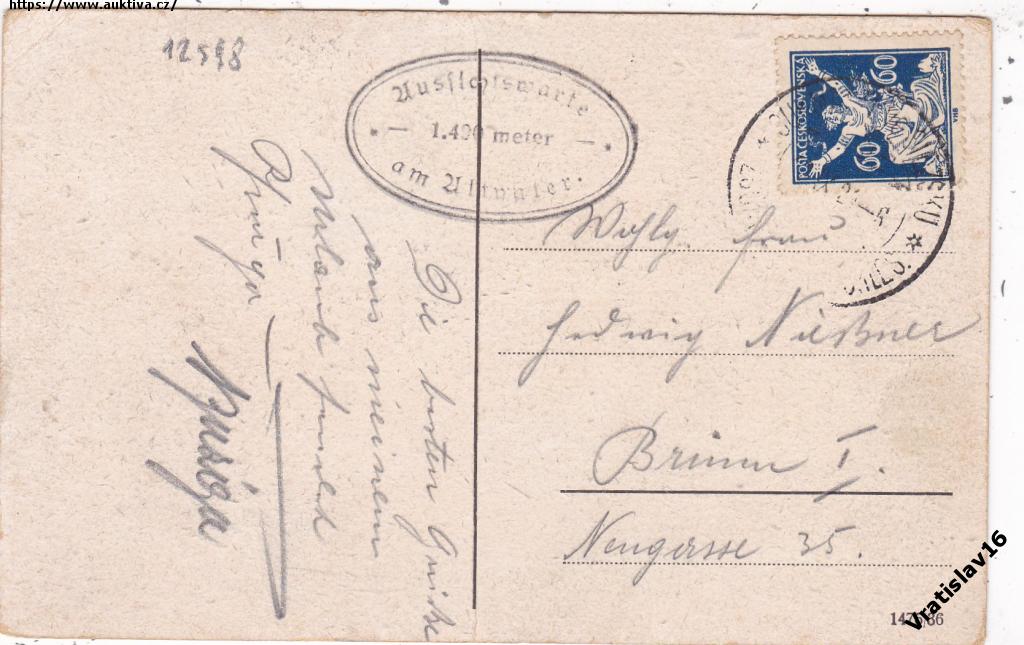 https://www.auktiva.cz/
12598
Aussichtswarte
1.490 meter
am Altvater.
POŠTA ČESKOSLOVENSKÁ
60
60
VHB
Die besten Grüße
aus meinem
Urlaub sendet
Wohlg. Frau
Hedwig Nießner
Brünn I.
Neugasse 35.
1475/36
Vratislav16